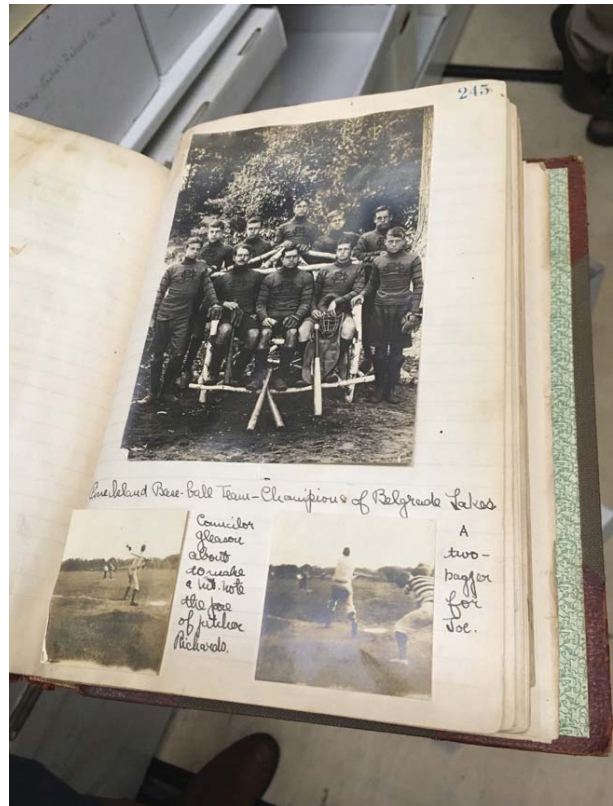 245
Pine Island Base-ball Team-Champions of Belgrade Lakes
Councilor
Gleason
about
to make
a hit. note
the pose
of pitcher
Richards.
A
two-
bagger
for
Joe.